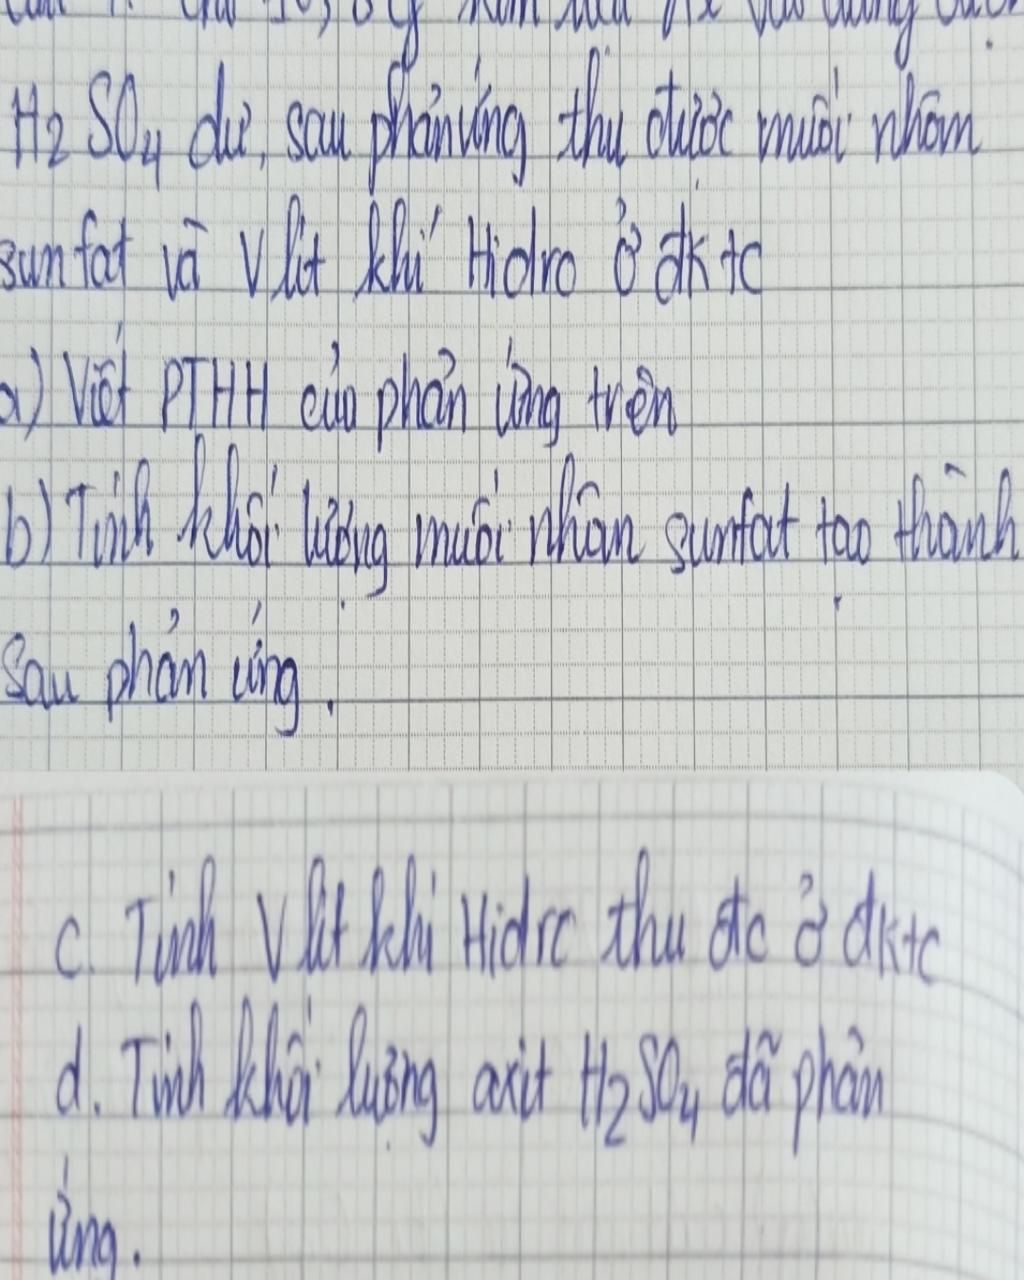 H2SO4 dư, sau phản ứng thu được muối nhôm
sunfat và V lít khí Hidro ở đktc
a) Viết PTHH của phản ứng trên
b) Tính khối lượng muối nhôm sunfat tạo thành
sau phản ứng.
c. Tính V lít khí Hidro thu đc ở đktc
d. Tính khối lượng axit H2SO4 đã phản
ứng.